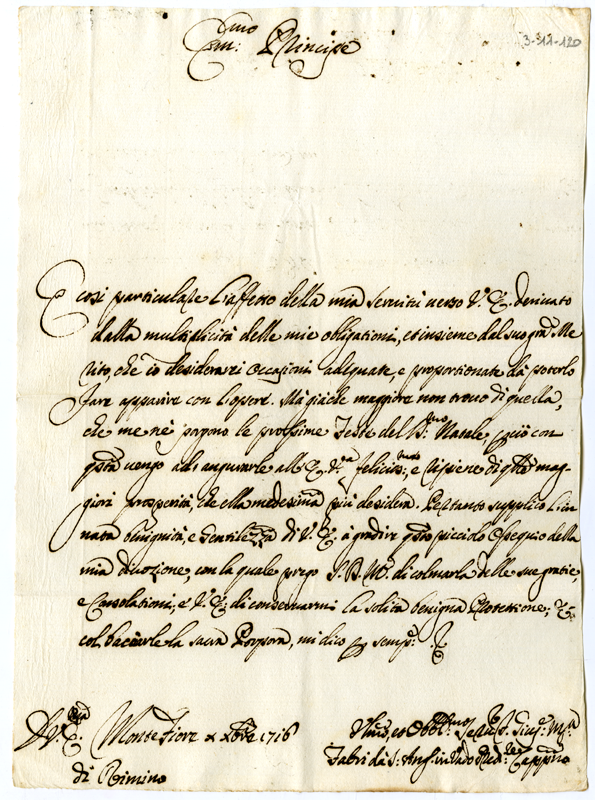 Em:mo Principe
3-311-120
E così particulare l'affetto della mia servitù verso V.E. derivato
dalla multiplicità delle mie obligationi, et insieme dal suo gra: Me
rito, che io desiderarei occasioni adequate, e proportionate da poterlo
fare apparire con l'opere. Mà giache maggiore non trovo di quella,
che me ne porgono le prossime Feste del S:mo Natale, con
q̃sta vengo ad augurarle all'E.V.ra felicis:me, e ripiene di q̃lle mag-
giori prosperità, che ella medesima più desidera. Pertanto supplico l'in
nata benignità, e Gentilezza di V.E. à gradire q̃sto picciolo Ossequio della
mia divotione, con la quale prego S.D.M. di colmarla delle sue gratie,
e Consolationi, e V.E. di conservarmi la solita benigna Protettione; Et
col baciarle la sacra Porpora, mi dico p semp:
D.V.E. Monte Fiore Xbre 1716
di Rimino
Humil:mo et Obb:mo Ser:
Fabri da S. Ang: in Vado Cappno